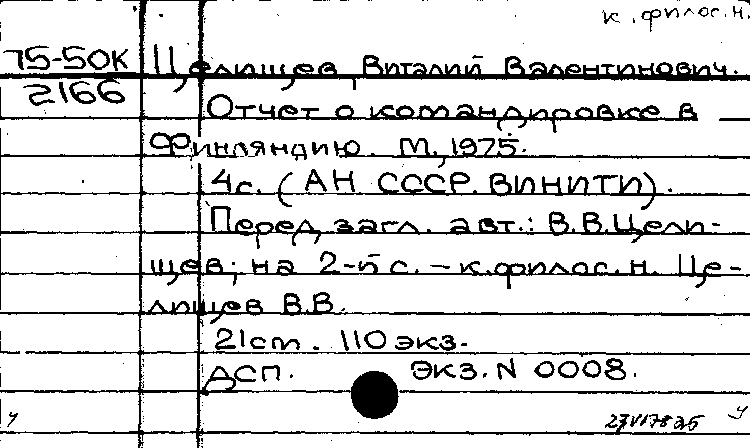 к.филос.н.
75-50К Целищев, Виталий Валентинович.
2166
Отчет о командировке в
Финляндию. М., 1975.
4с. (АН СССР. ВИНИТИ).
Перед загл. авт.: В.В.Цели-
щев; на 2-й с. – к.филос.н. Це-
лищев В.В.
21см. 110 экз.
ДСП. Экз. N 0008.
у
у